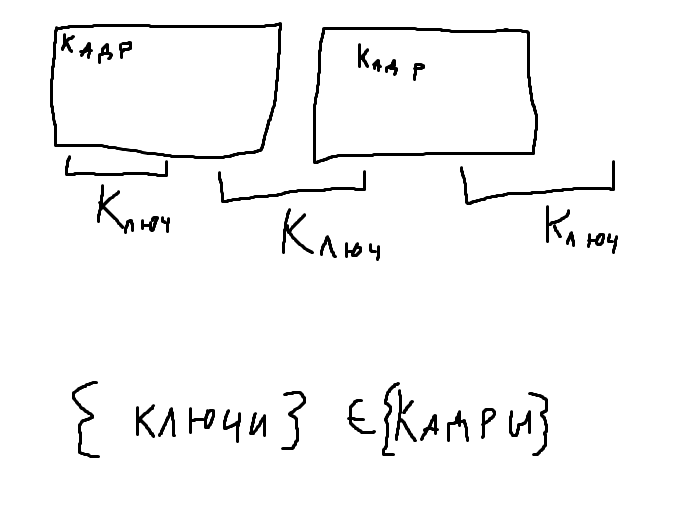 Кадр
Кадр
Ключ
Ключ
Ключ
{ ключи } ∈ {Кадры}